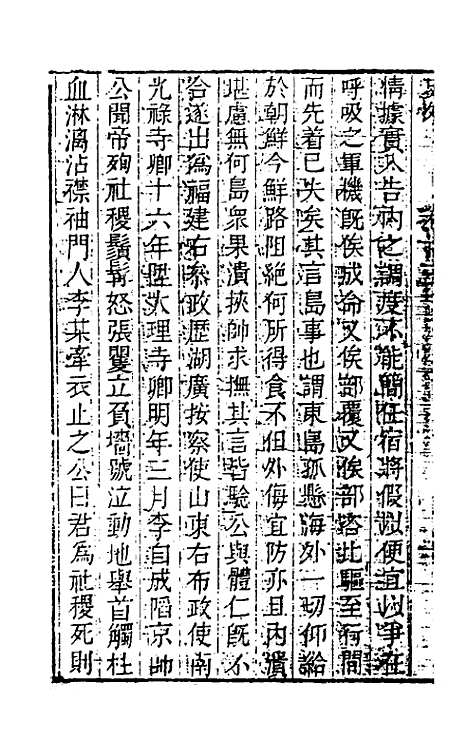 情據實入告內之謂度不能簡任宿將假以便宜以爭在
呼吸之軍機既俟成命又俟部覆又俟部咨比驅至行間
而先着已失矣其言島事也謂東島孤懸海外一切仰給
於朝鮮今鮮路阻絕何所得食不但外侮宜防亦且內潰
堪慮無何島衆果潰挾帥求撫其言皆驗公與體仁旣不
合遂出爲福建右叅政歷湖廣按察使山東右布政使南
光祿寺卿十六年陞大理寺卿明年三月李自成陷京師
公聞帝殉社稷鬚髯怒張矍立負墻號泣動地舉首觸柱
血淋漓沾襟袖門人李某牽衣止之公曰君爲社稷死則